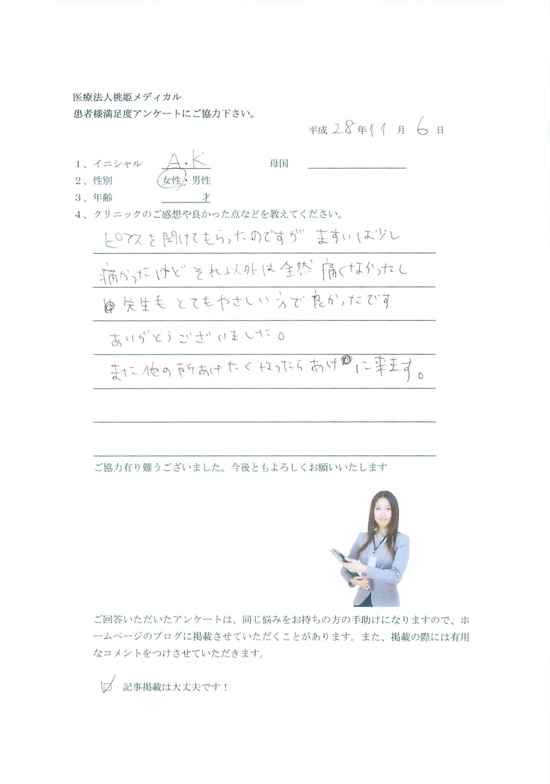 医療法人桃姫メディカル
患者様満足度アンケートにご協力下さい。
平成 28年11月 6日
1、イニシャル A・K 母国
2、性別 女性・男性
3、年齢 才
4、クリニックのご感想や良かった点などを教えてください。
ピアスを開けてもらったのですが ますいは少し
痛かったけど それ以外は全然 痛くなかったし
先生も とてもやさしい方で 良かったです
ありがとうございました。
また他の所あけたくなったら あけに来ます。
ご協力有り難うございました。今後ともよろしくお願いいたします
ご回答いただいたアンケートは、同じ悩みをお持ちの方の手助けになりますので、ホ
ームページのブログに掲載させていただくことがあります。また、掲載の際には有用
なコメントをつけさせていただきます。
☑ 記事掲載は大丈夫です！